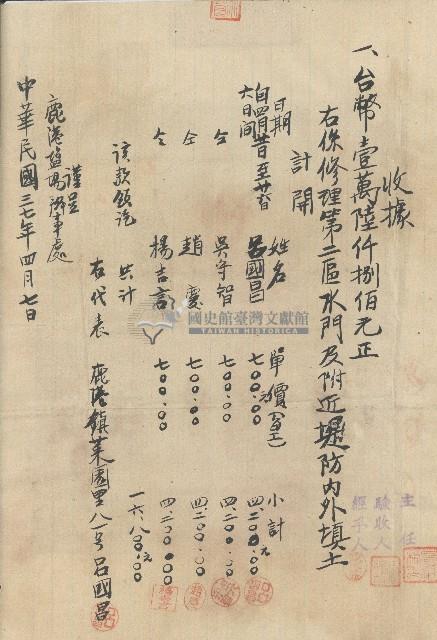 收據
一、台幣壹萬陸仟捌佰元正
右係修理第二區水門及附近堤防內外填土
計開
日期 姓名 單價 小計
六日間 呂國昌 七〇〇.〇〇 四.二〇〇.〇〇元
仝 吳守智 七〇〇.〇〇 四.二〇〇.〇〇
仝 趙 七〇〇.〇〇 四.二〇〇.〇〇
仝 楊吉言 七〇〇.〇〇 四.二〇〇.〇〇
共計 一六.八〇〇.〇〇元
該款領訖
右代表 鹿港鎮菜園里八一号呂國昌
謹呈
鹿港鹽場辦事處
中華民國三七年四月七日
主任
驗收人
經手人
國史館臺灣文獻館
TAIWAN HISTORICA